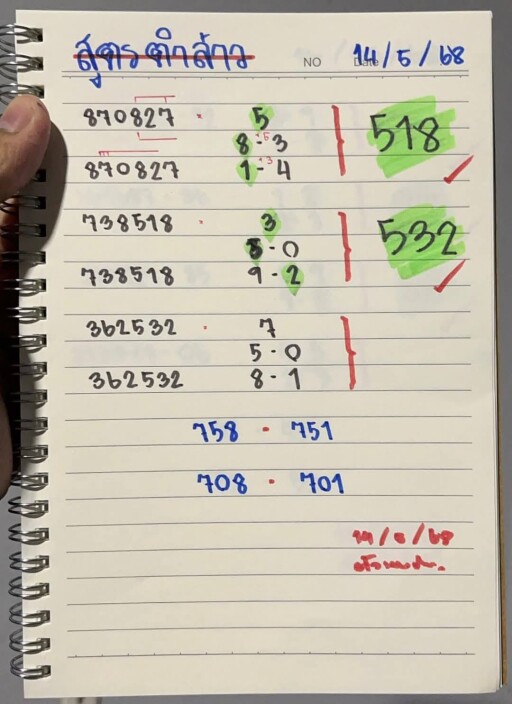 สูตรตำลาว NO Date 14/5/68
870827 · 5
8 - 3 +5
518
870827 1 - 4 +3
738518 · 3
8 - 0
532
738518 9 - 2
362532 · 7
5 - 0
362532 8 - 1
758 · 751
708 · 701
14/5/68